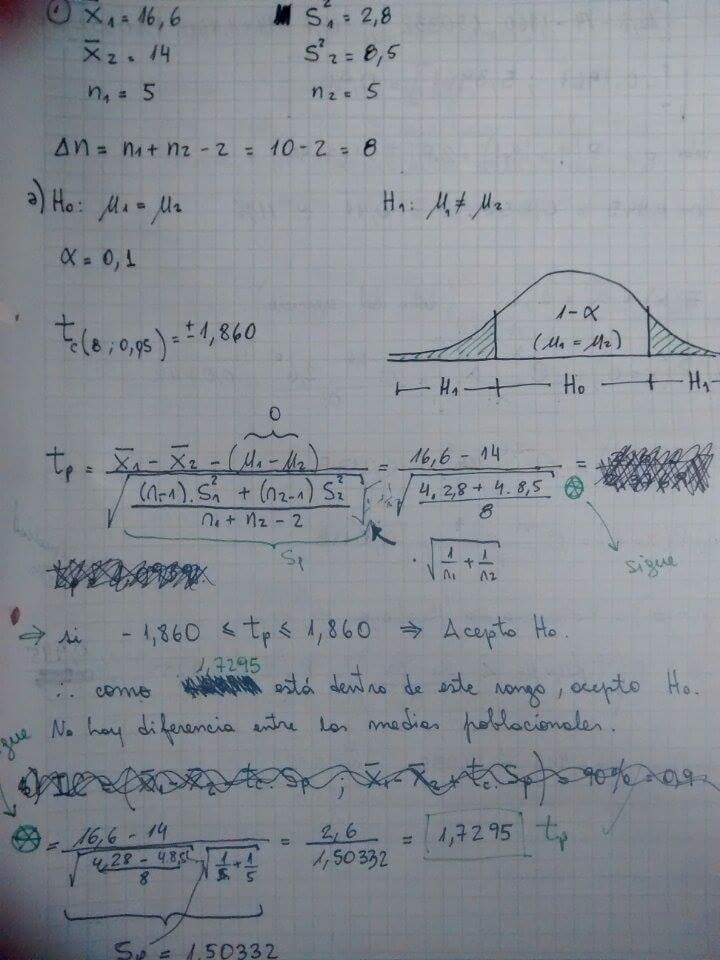 ① X̄₁ = 16,6 S²₁ = 2,8
X̄₂ = 14 S²₂ = 8,5
n₁ = 5 n₂ = 5
Δn = n₁ + n₂ - 2 = 10 - 2 = 8
a) H₀: μ₁ = μ₂ H₁: μ₁ ≠ μ₂
α = 0,1
t_c(8 ; 0,95) = ± 1,860
1-α
(μ₁ = μ₂)
H₁ H₀ H₁
0
t_p = (X̄₁ - X̄₂ - (μ₁ - μ₂)) / √(((n-1).S₁² + (n₂-1) S₂²) / (n₁ + n₂ - 2)) = (16,6 - 14) / √((4.2,8 + 4.8,5) / 8) =
Sp · √(1/n₁ + 1/n₂) sigue
⇒ si - 1,860 ≤ t_p ≤ 1,860 ⇒ Acepto H₀.
1,7295
∴ como está dentro de este rango, acepto H₀.
No hay diferencia entre las medias poblacionales.
sigue
b) IC = (X̄₁ - X̄₂ - t_c. Sp ; X̄₁ - X̄₂ + t_c. Sp) = 90% = 0,9
= (16,6 - 14) / (√((4.28 - 4.8,5) / 8) √(1/5 + 1/5)) = 2,6 / 1,50332 = 1,7295 t_p
Sp = 1,50332